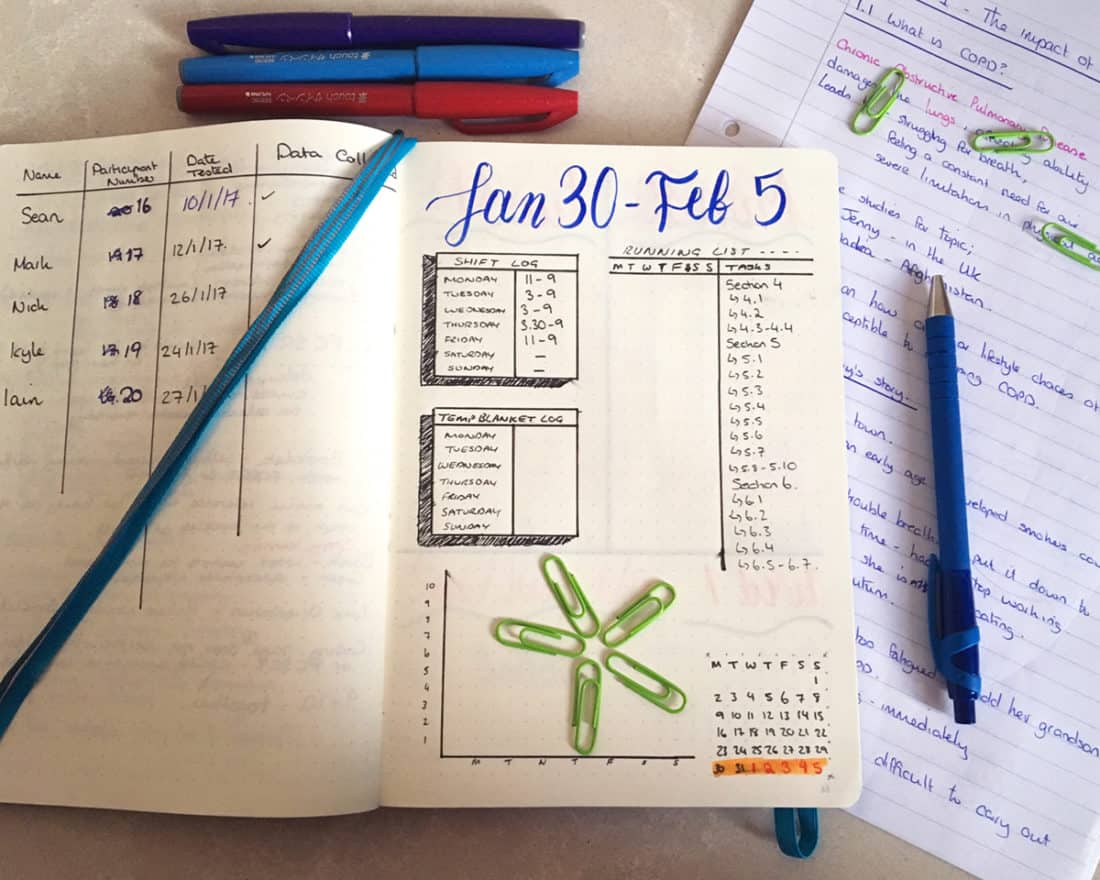 touch サインペン
touch サインペン
Name Participant Number Date Tested Data Coll
Sean 16 10/1/17. ✓
Mark 17 12/1/17. ✓
Nick 18 26/1/17
Kyle 19 24/1/17
Iain 20 27/1/
Jan 30 - Feb 5
SHIFT LOG
MONDAY 11-9
TUESDAY 3-9
WEDNESDAY 3-9
THURSDAY 3.30-9
FRIDAY 11-9
SATURDAY —
SUNDAY —
TEMP BLANKET LOG
MONDAY
TUESDAY
WEDNESDAY
THURSDAY
FRIDAY
SATURDAY
SUNDAY
RUNNING LIST ----
M T W T F S S TASKS
Section 4
↳ 4.1
↳ 4.2
↳ 4.3-4.4
Section 5
↳ 5.1
↳ 5.2
↳ 5.3
↳ 5.4
↳ 5.5
↳ 5.6
↳ 5.7
↳ 5.8-5.10
Section 6.
↳ 6.1
↳ 6.2
↳ 6.3
↳ 6.4
↳ 6.5-6.7.
10
9
8
7
6
5
4
3
2
1
M T W T F S S
M T W T F S S
1
2 3 4 5 6 7 8
9 10 11 12 13 14 15
16 17 18 19 20 21 22
23 24 25 26 27 28 29
30 31 1 2 3 4 5
1 - The impact of
1.1 What is COPD?
Chronic Obstructive Pulmonary Disease
damages the lungs, ability
Leads struggling for breath,
feeling a constant need for air
severe limitations in physical
studies for topic;
Jenny - in the UK
- Afghanistan.
on how or lifestyle choices
COPD.
story.
town.
an early age developed smokers
trouble breath put it down to
time - stop working.
she is
fatigued
add her grandson
- immediately
difficult to carry out